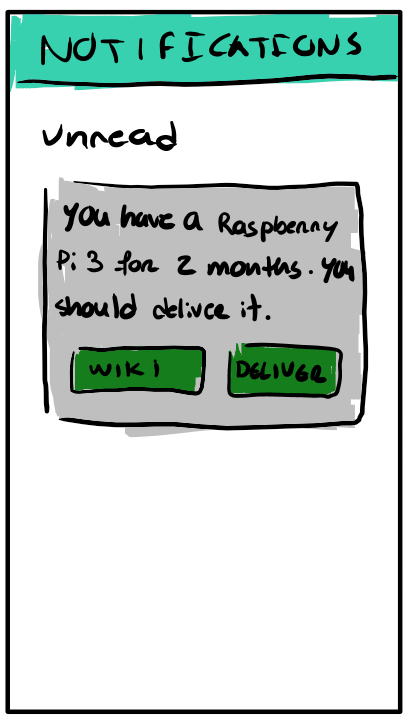 NOTIFICATIONS
Unread
You have a Raspberry
Pi 3 for 2 months. You
should delivce it.
WIKI
DELIVER